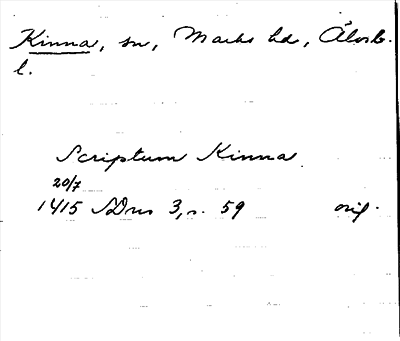 Kinna, sn, Marks hd, Älvsb.
l.
Scriptum Kinna
20/7
1415 SDns 3, s. 59 orig.